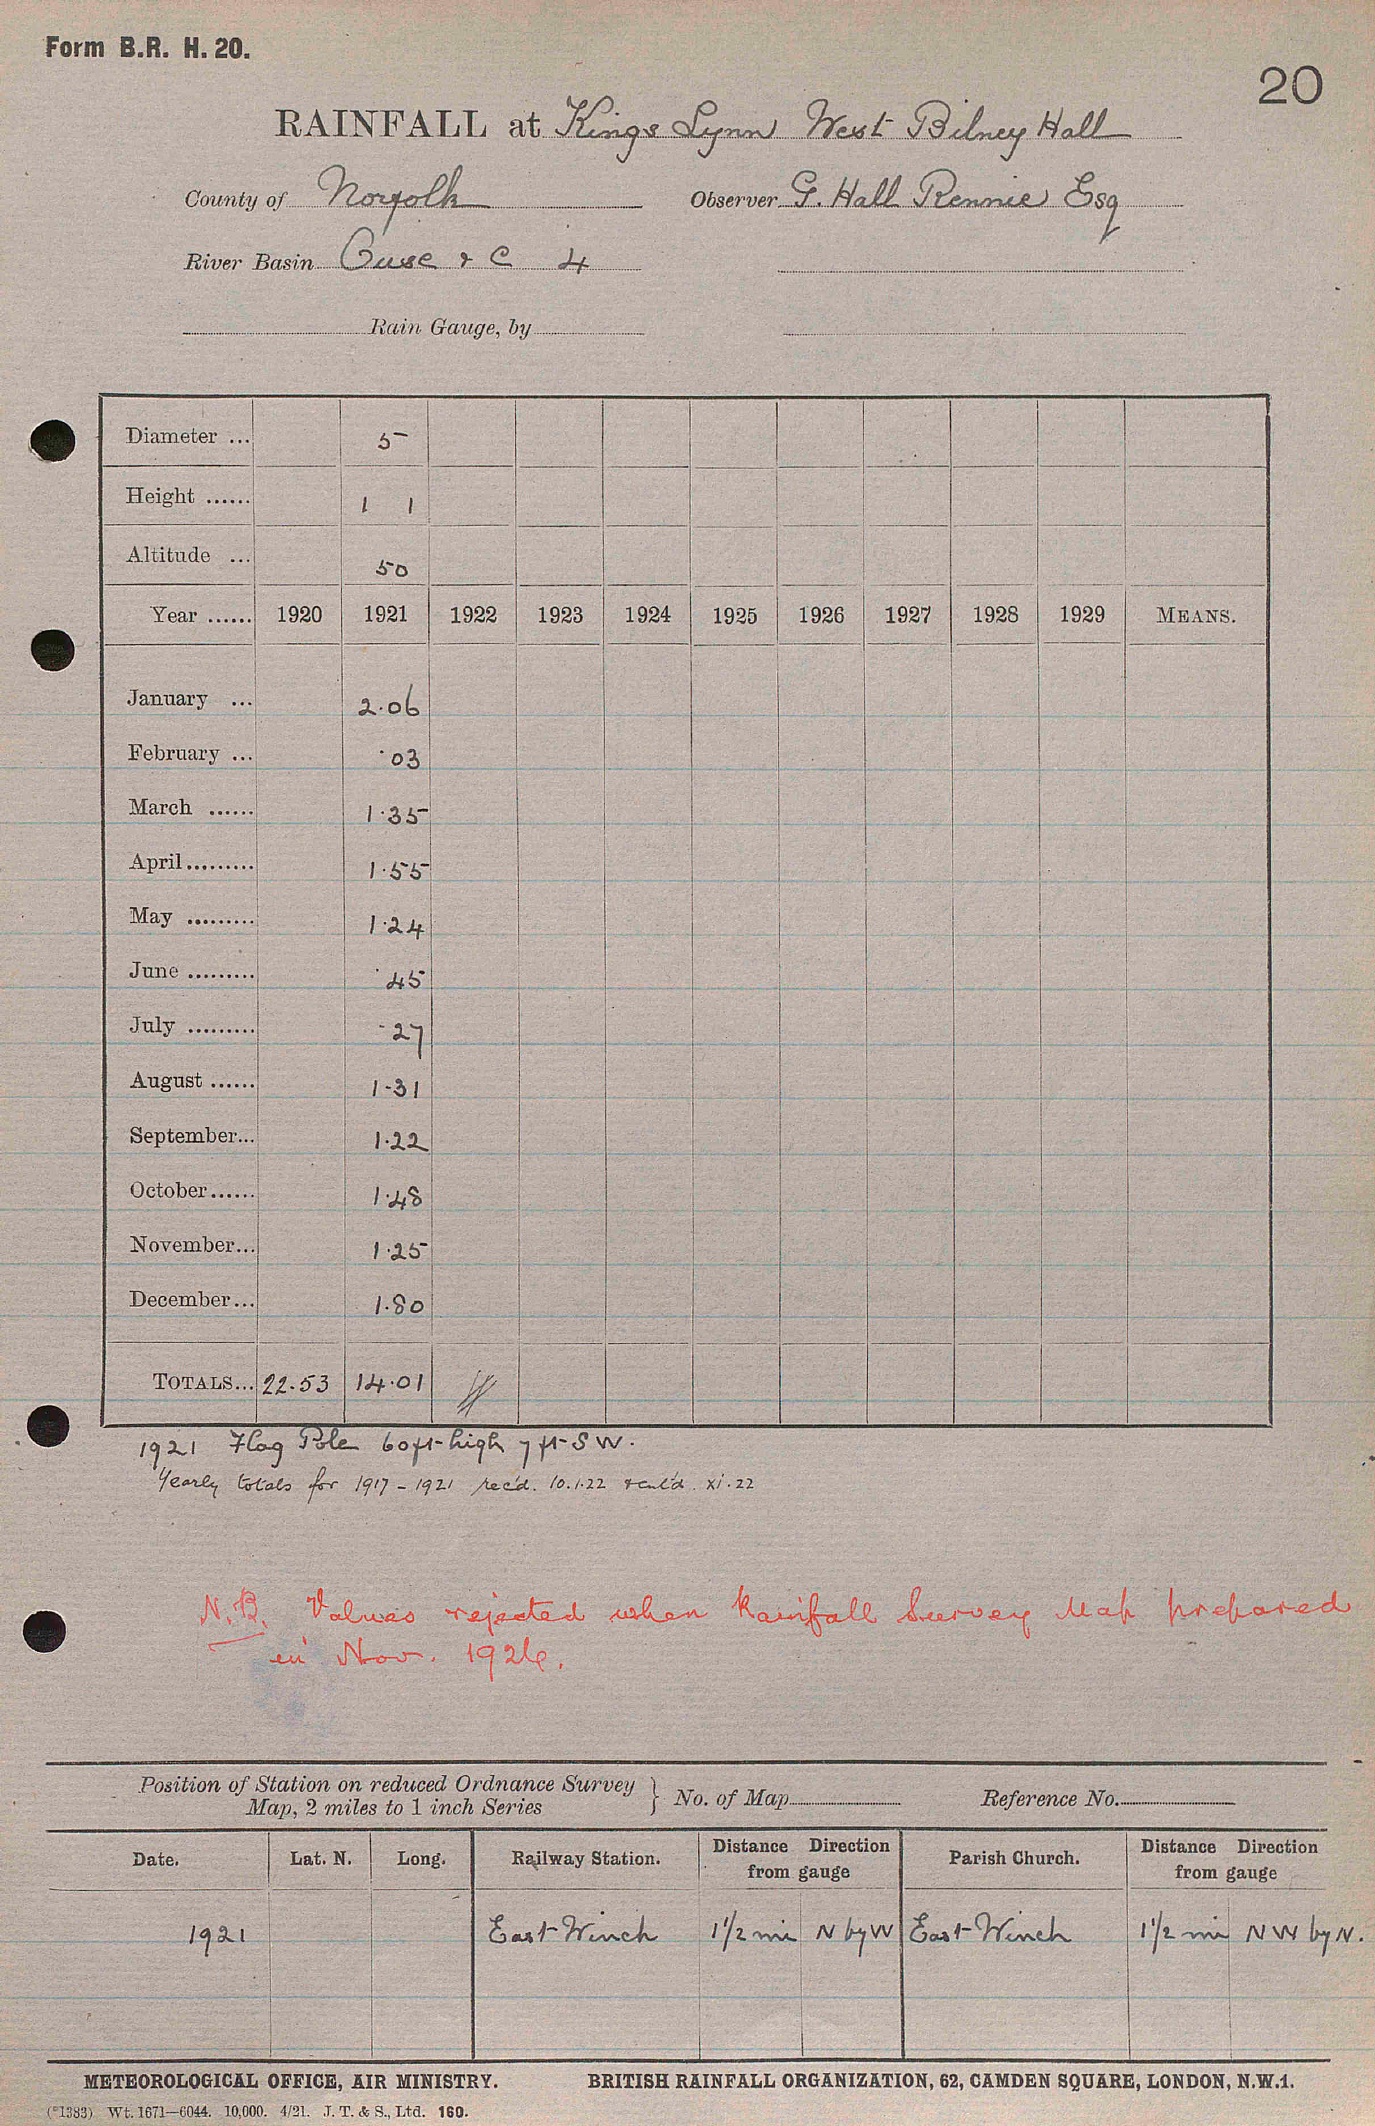 Form B.R. H. 20.
20
RAINFALL at Kings Lynn West Bilney Hall
County of Norfolk Observer G. Hall Rennie Esq
River Basin Ouse & C 4
Rain Gauge, by
Diameter ... 5
Height ...... 1 1
Altitude ... 50
Year ...... 1920 1921 1922 1923 1924 1925 1926 1927 1928 1929 MEANS.
January ... 2.06
February ... .03
March ...... 1.35
April......... 1.55
May ......... 1.24
June ......... .45
July ......... .27
August ...... 1.31
September... 1.22
October...... 1.48
November... 1.25
December... 1.80
TOTALS... 22.53 14.01
1921 Flag Pole 60ft high 7 ft SW.
Yearly totals for 1917 - 1921 rec'd. 10.1.22 & ent'd. xi.22
N.B. Values rejected when Rainfall Survey Map prepared
in Nov. 1926.
Position of Station on reduced Ordnance Survey
Map, 2 miles to 1 inch Series } No. of Map Reference No.
Date. Lat. N. Long. Railway Station. Distance Direction from gauge Parish Church. Distance Direction from gauge
1921 East Winch 1 1/2 mi N by W East Winch 1 1/2 mi NW by N.
METEOROLOGICAL OFFICE, AIR MINISTRY. BRITISH RAINFALL ORGANIZATION, 62, CAMDEN SQUARE, LONDON, N.W.1.
(*1383) Wt. 1671—6044. 10,000. 4/21. J. T. & S., Ltd. 160.